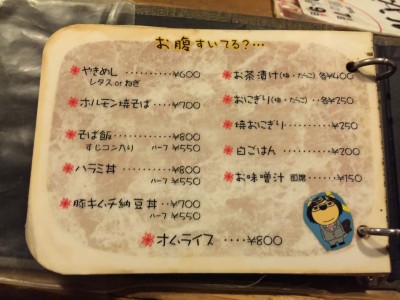 お腹すいてる?…
やきめし ・・・・・・・・・¥600
レタス or ねぎ
ホルモン焼そば ・・・・¥700
そば飯 ・・・・・・・・・・・¥800
すじコン入り ハーフ ¥550
ハラミ丼 ・・・・・・・・・¥800
ハーフ ¥550
豚キムチ納豆丼 ・・¥700
ハーフ ¥550
お茶漬け(梅・たらこ) 各¥400
おにぎり(梅・たらこ) ・・各¥250
焼おにぎり ・・・・・・・・・¥250
白ごはん ・・・・・・・・・¥200
お味噌汁 即席 ・・・・・¥150
オムライス ・・・・¥800